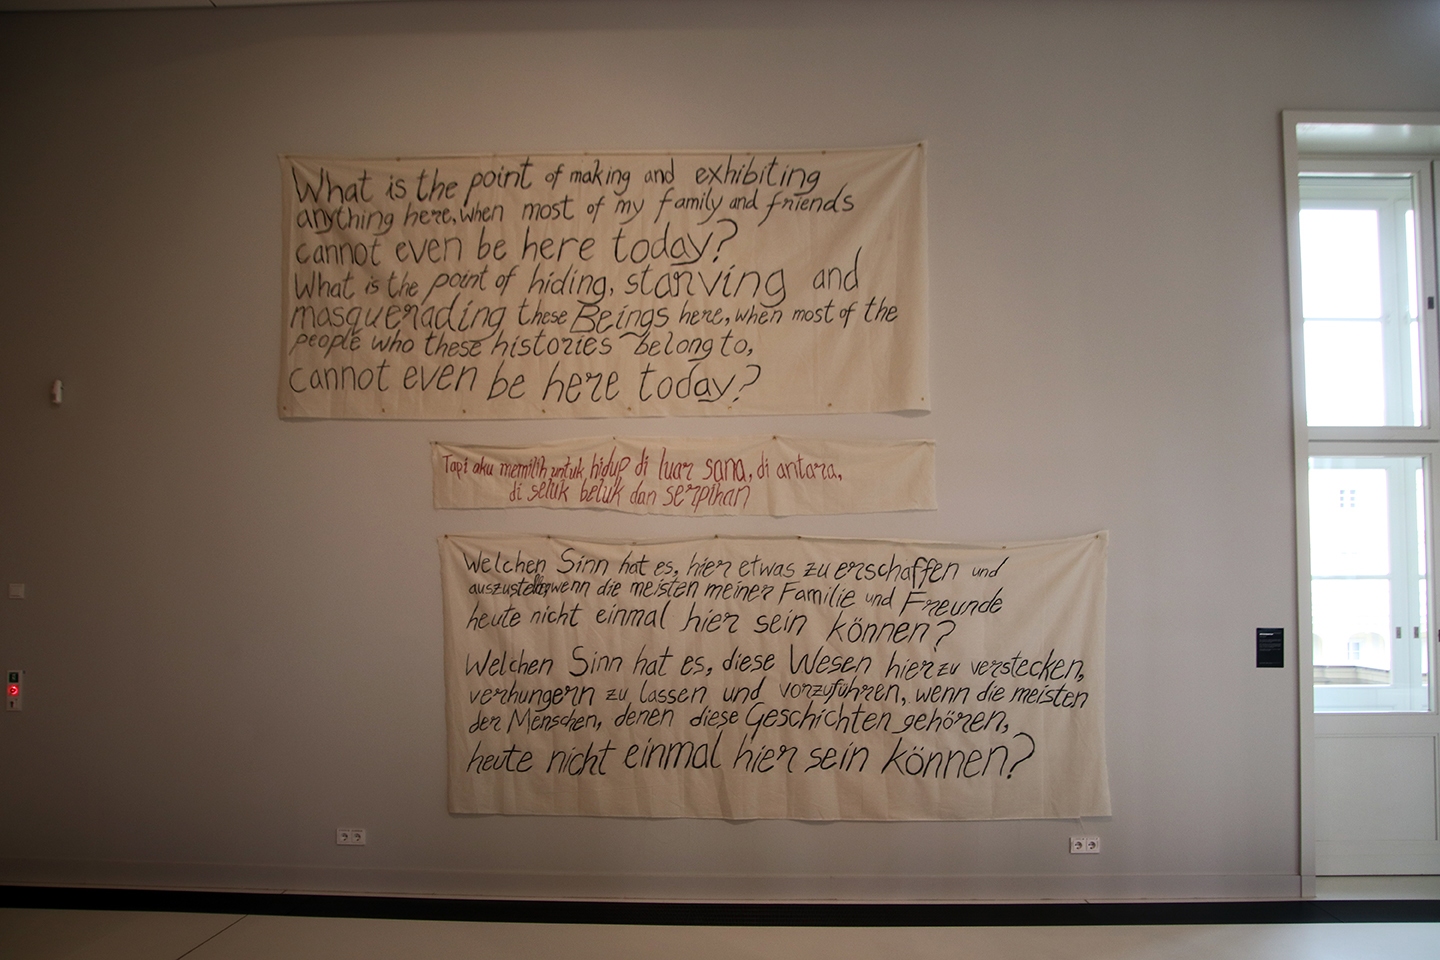 What is the point of making and exhibiting
anything here, when most of my family and friends
cannot even be here today?
What is the point of hiding, starving and
masquerading these Beings here, when most of the
people who these histories belong to,
cannot even be here today?
Tapi aku memilih untuk hidup di luar sana, di antara,
di seluk beluk dan serpihan
Welchen Sinn hat es, hier etwas zu erschaffen und
wenn die meisten meiner Familie und Freunde
heute nicht einmal hier sein können?
Welchen Sinn hat es, diese Wesen hier zu verstecken,
verhungern zu lassen und vorzuführen, wenn die meisten
der Menschen, denen diese Geschichten gehören,
heute nicht einmal hier sein können?